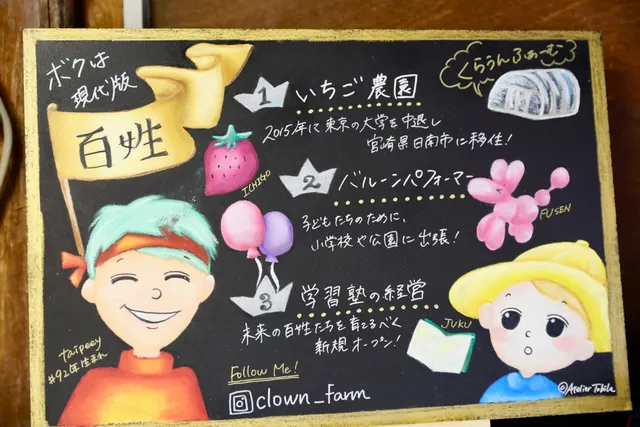 ボクは
現代版
百姓
1 いちご農園
2015年に東京の大学を中退し
宮崎県日南市に移住!
ICHIGO
くらうんふぁーむ
2 バルーンパフォーマー
子どもたちのために、
小学校や公園に出張!
FUSEN
3 学習塾の経営
未来の百姓たちを育てるべく
新規オープン!
JUKU
taipeey
#92年生まれ
Follow Me!
clown_farm
©Atelier